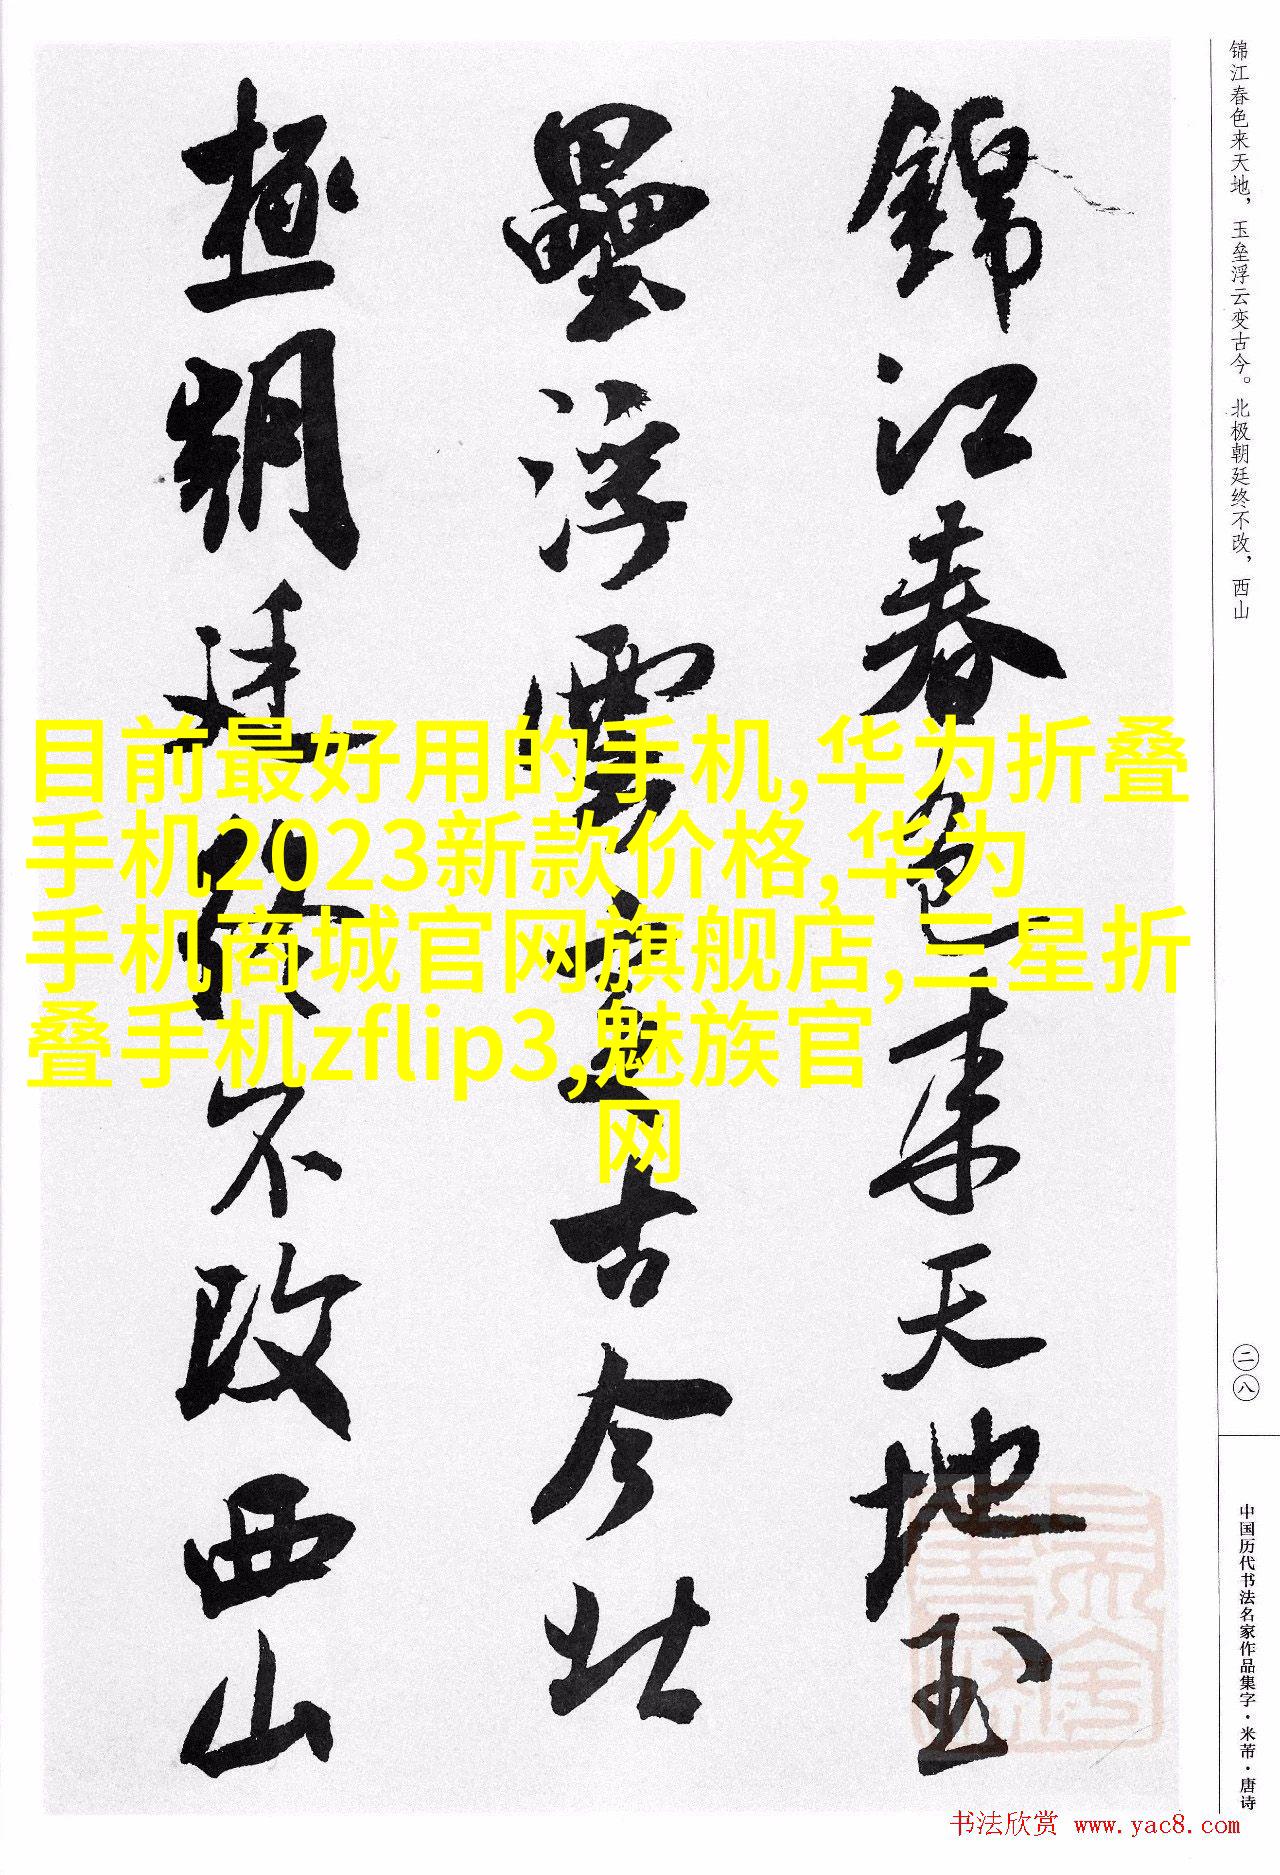 锦江春色来天地，玉垒浮云变古今。北极朝廷终不改，西山
錦江春色来天地玉
壘浮雲變古今北
極朝廷終不改西山
目前最好用的手机,华为折叠
手机2023新款价格,华为
手机商城官网旗舰店,三星折
叠手机zflip3,魅族官
网
二八
中国历代书法名家作品集字·米芾·唐诗
书法欣赏 www.yac8.com